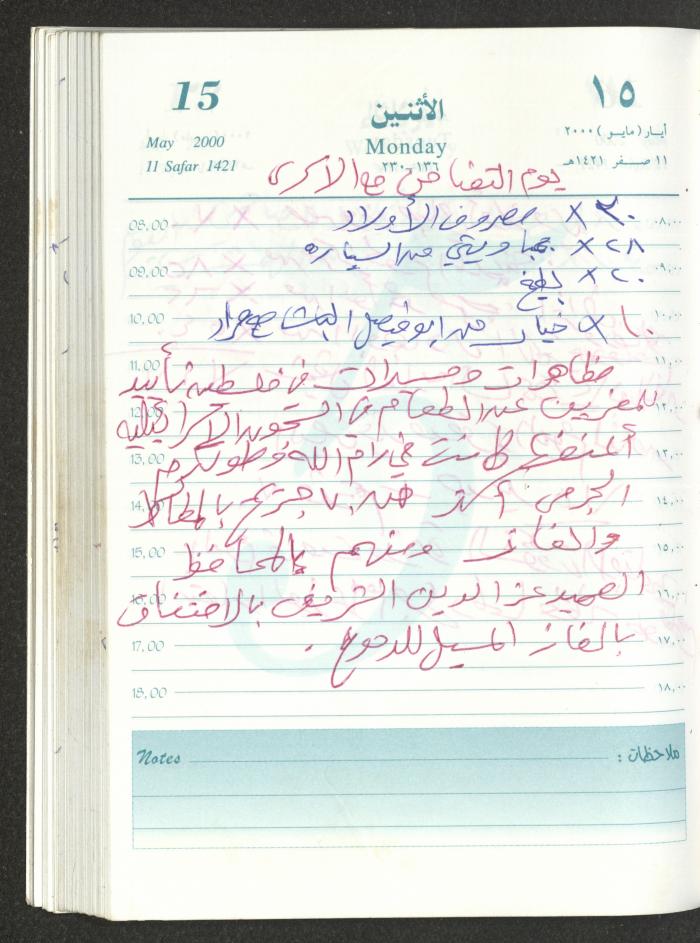 15
١٥
الأثنين
May 2000
Monday
أيار (مايو) ٢٠٠٠
11 Safar 1421
٢٣٠-١٣٦
١١ صفر ١٤٢١هـ
يوم التضامن مع الاسرى
08.00 ٢٠ × مصروف الأولاد ٠٨,٠٠
٢٨ × من السياره
09.00 ٢٠ × بطيخ ٠٩,٠٠
10.00 ١٠ × خيار من ابو فيصل ١٠,٠٠
11.00 مظاهرات ومسيرات في فلسطين تأييد ١١,٠٠
12.00 للمضربين عن الطعام في السجون الاسرائيليه ١٢,٠٠
13.00 كانت في رام الله وطولكرم
14.00 الجرحى اكثر من جريح بالمطاط ١٤,٠٠
15.00 والغاز ومنهم المحافظ ١٥,٠٠
16.00 العميد عز الدين الشريف بالاختناق ١٦,٠٠
17.00 بالغاز المسيل للدموع . ١٧,٠٠
18.00 ١٨,٠٠
Notes ملاحظات :